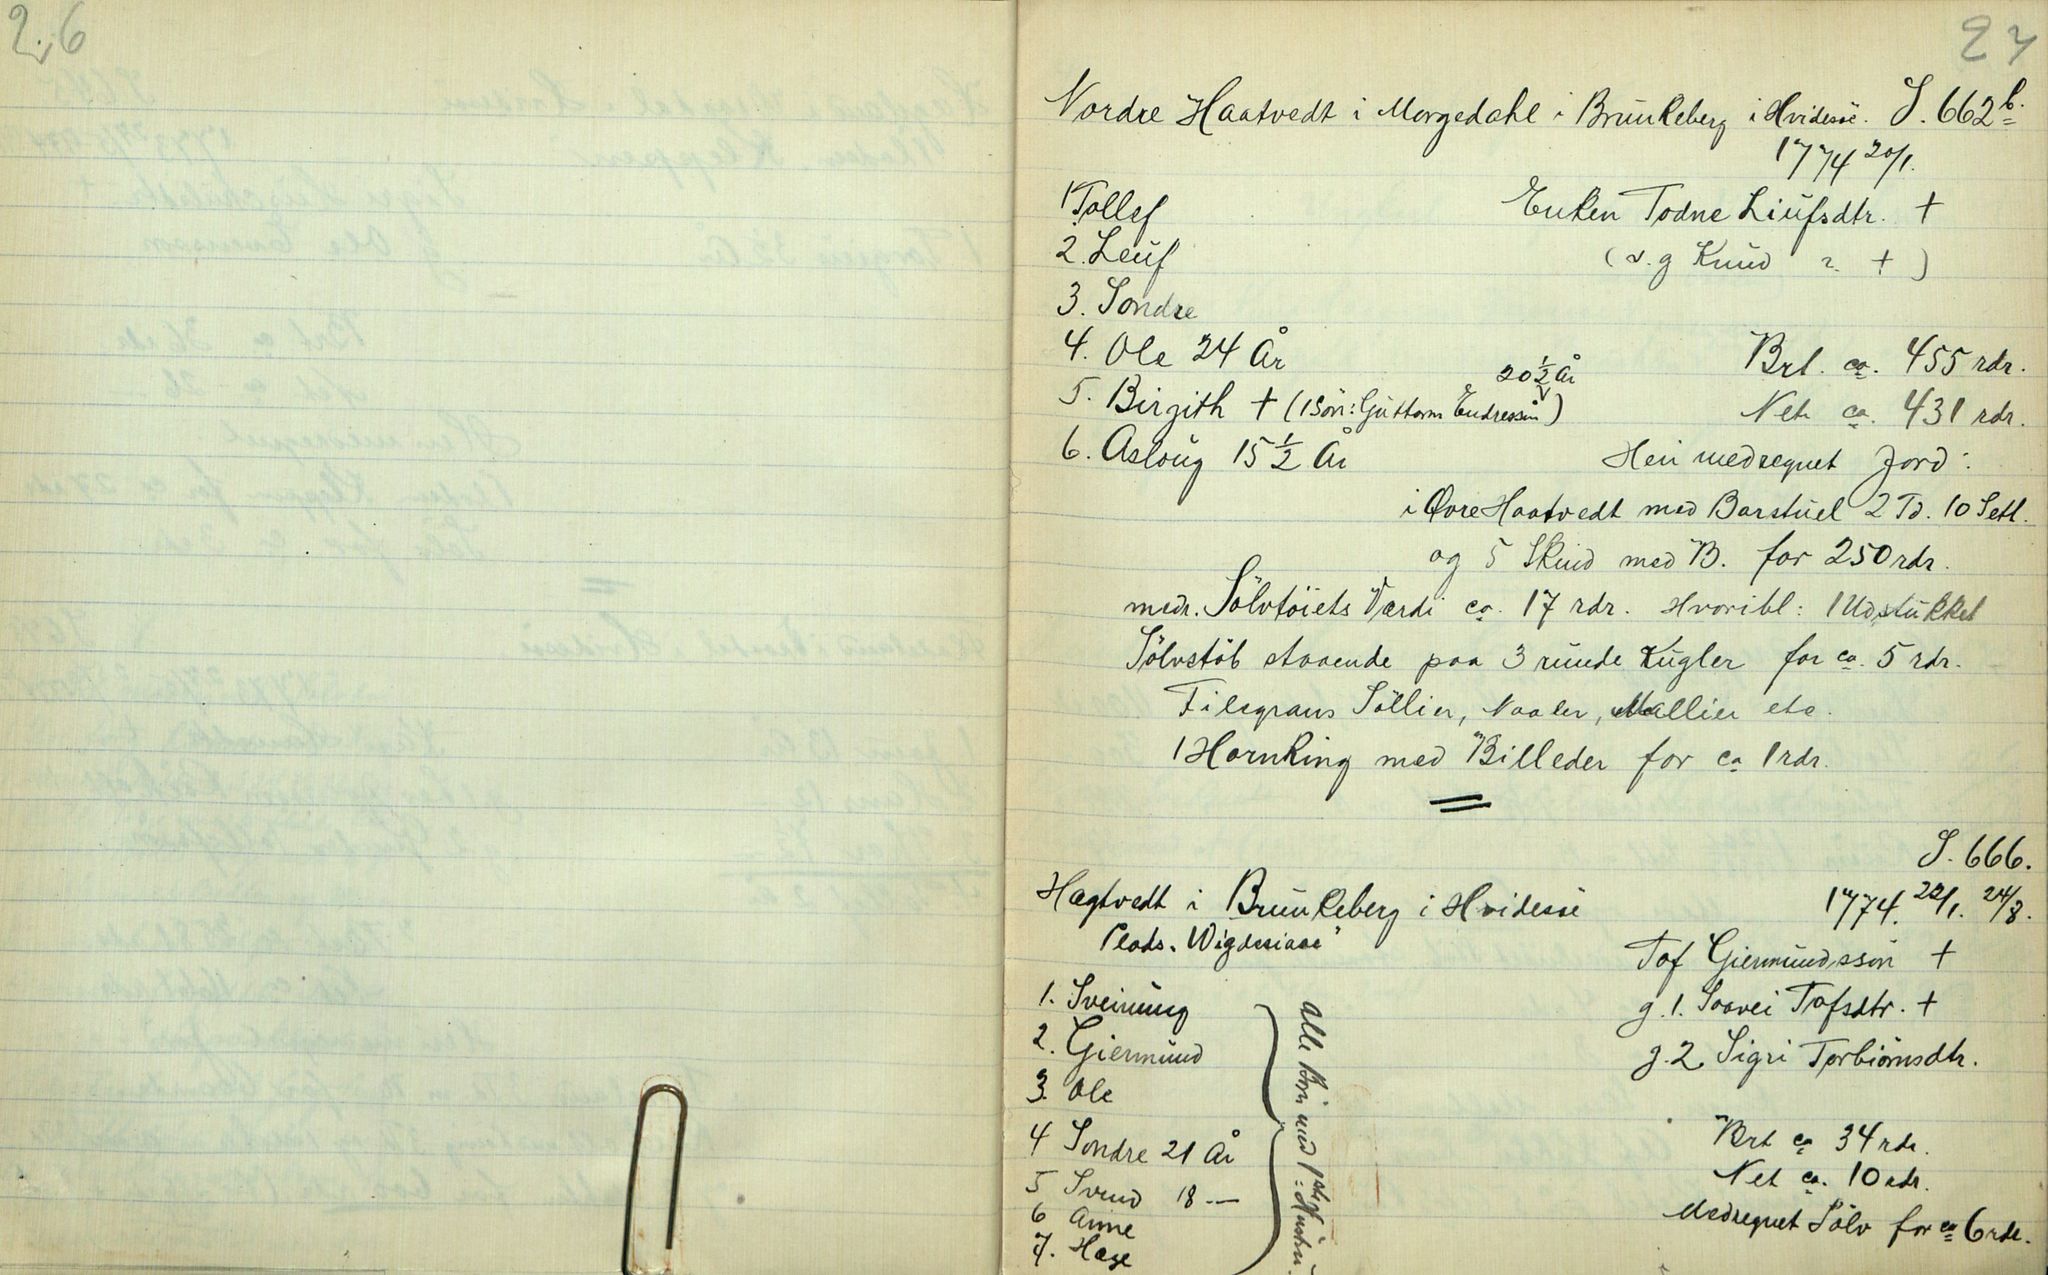 26
27
Nordre Haatvedt i Morgedahl i Brunkeberg i Hvidesöe. S. 662b.
1774 20/1.
1 Tollef
Enken Todne Liufsdtr. +
2. Leuf
(v. g Knud ?. +)
3. Sondre
4. Ole 24 År
Brt. ca. 455 rdr.
20 1/2 År
5. Birgith + (1 Sön: Guttorm Endressön)
Net. ca. 431 rdr.
6. Asloug 15 1/2 År
Heri medregnet Jord:
i Øvre Haatvedt med Barstuel 2 Td. 10 Setl.
og 5 Skind med B. for 250 rdr.
medr. Sölvtöiets Værdi ca. 17 rdr. Hvoribl: 1 Udstukket
Sölvstöb staaende paa 3 runde Kugler for ca. 5 rdr.
Filegrans Söllier, Naaler, Mallier etc.
1 Hornking med Billeder for ca 1 rdr.
S. 666.
Hægtvedt i Brunkeberg i Hvidesöe
1774. 22/1. 24/8.
Plads. "Wigdesiaae"
Tof Giermundssön +
1. Sveinung
g. 1. Saavei Tofsdtr. +
2. Giermund
g. 2 Sigri Torbiörnsdtr.
3. Ole
4 Sondre 21 År
Brt ca 34 rdr.
5 Svend 18 —
Net ca. 10 rdr.
6 Anne
Medregnet Sölv for ca 6 rdr.
7. Hæge
alle Börn med 1ste Hustru.